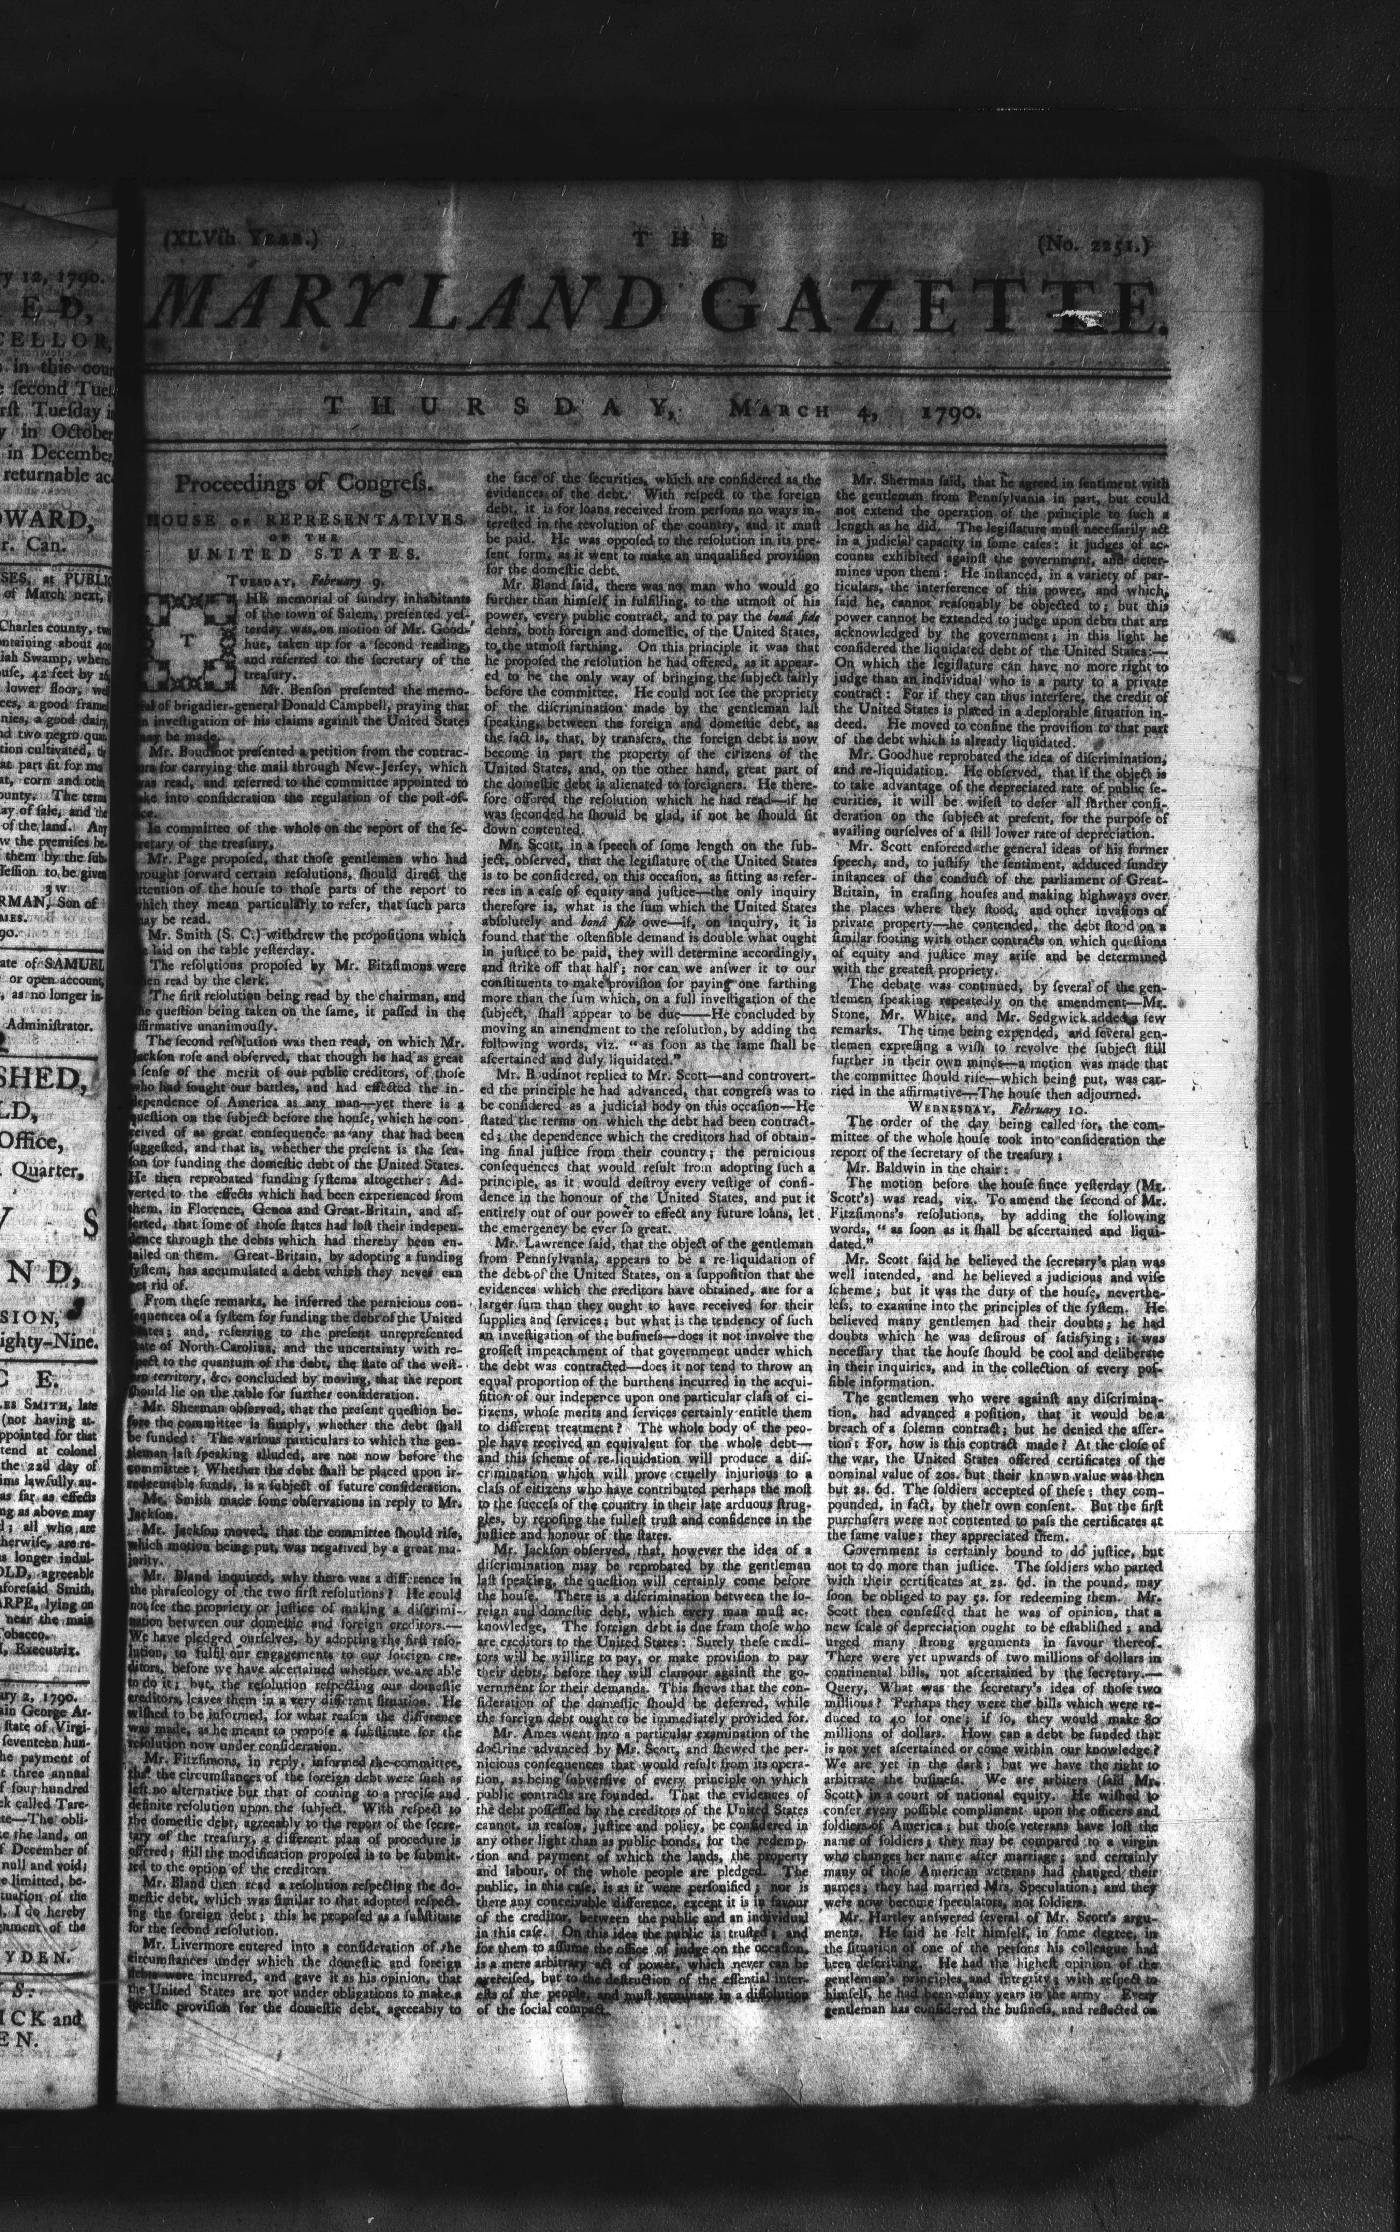 (XLVth YEAR.)
THE
(No. 2251.)
MARYLAND GAZETTE.
THURSDAY, MARCH 4, 1790.
Proceedings of Congreſs.
HOUSE OF REPRESENTATIVES
OF THE
UNITED STATES.
TUESDAY, February 9.
THE memorial of ſundry inhabitants
of the town of Salem, preſented yeſ-
terday was, on motion of Mr. Good-
hue, taken up for a ſecond reading,
and referred to the ſecretary of the
treaſury.
Mr. Benſon preſented the memo-
of brigadier-general Donald Campbell, praying that
inveſtigation of his claims againſt the United States
may be made.
Mr. Boudinot preſented a petition from the contrac-
for carrying the mail through New-Jerſey, which
was read, and referred to the committee appointed to
into conſideration the regulation of the poſt-of-
In committee of the whole on the report of the ſe-
cretary of the treaſury,
Mr. Page propoſed, that thoſe gentlemen who had
brought forward certain reſolutions, ſhould direct the
attention of the houſe to thoſe parts of the report to
which they mean particularly to refer, that ſuch parts
may be read.
Mr. Smith (S. C.) withdrew the propoſitions which
laid on the table yeſterday.
The reſolutions propoſed by Mr. Fitzſimons were
then read by the clerk.
The firſt reſolution being read by the chairman, and
the queſtion being taken on the ſame, it paſſed in the
affirmative unanimouſly.
The ſecond reſolution was then read, on which Mr.
Jackſon roſe and obſerved, that though he had as great
a ſenſe of the merit of our public creditors, of thoſe
who had fought our battles, and had effected the in-
dependence of America as any man—yet there is a
queſtion on the ſubject before the houſe, which he con-
ceived of as great conſequence as any that had been
ſuggeſted, and that is, whether the preſent is the ſea-
ſon for funding the domeſtic debt of the United States.
He then reprobated funding ſyſtems altogether: Ad-
verted to the effects which had been experienced from
them, in Florence, Genoa and Great-Britain, and aſ-
ſerted, that ſome of thoſe ſtates had loſt their indepen-
dence through the debts which had thereby been en-
tailed on them. Great-Britain, by adopting a funding
ſyſtem, has accumulated a debt which they never can
get rid of.
From theſe remarks, he inferred the pernicious con-
ſequences of a ſyſtem for funding the debt of the United
States; and, referring to the preſent unrepreſented
ſtate of North-Carolina, and the uncertainty with re-
ſpect to the quantum of the debt, the ſtate of the weſt-
ern territory, &c. concluded by moving, that the report
ſhould lie on the table for further conſideration.
Mr. Sherman obſerved, that the preſent queſtion be-
fore the committee is ſimply, whether the debt ſhall
be funded: The various particulars to which the gen-
tleman laſt ſpeaking alluded, are not now before the
committee: Whether the debt ſhall be placed upon ir-
redeemable funds, is a ſubject of future conſideration.
Mr. Smith made ſome obſervations in reply to Mr.
Jackſon.
Mr. Jackſon moved, that the committee ſhould riſe,
which motion being put, was negatived by a great ma-
jority.
Mr. Bland inquired, why there was a difference in
the phraſeology of the two firſt reſolutions? He could
not ſee the propriety or juſtice of making a diſcrimi-
nation between our domeſtic and foreign creditors.—
We have pledged ourſelves, by adopting the firſt reſo-
lution, to fulfil our engagements to our foreign cre-
ditors, before we have aſcertained whether we are able
to do it; but, the reſolution reſpecting our domeſtic
creditors, leaves them in a very different ſituation. He
wiſhed to be informed, for what reaſon the difference
was made, as he meant to propoſe a ſubſtitute for the
reſolution now under conſideration.
Mr. Fitzſimons, in reply, informed the committee,
that the circumſtances of the foreign debt were ſuch as
left no alternative but that of coming to a preciſe and
definite reſolution upon the ſubject. With reſpect to
the domeſtic debt, agreeably to the report of the ſecre-
tary of the treaſury, a different plan of procedure is
offered; ſtill the modification propoſed is to be ſubmit-
ted to the option of the creditors.
Mr. Bland then read a reſolution reſpecting the do-
meſtic debt, which was ſimilar to that adopted reſpect-
ing the foreign debt; this he propoſed as a ſubſtitute
for the ſecond reſolution.
Mr. Livermore entered into a conſideration of the
circumſtances under which the domeſtic and foreign
debts were incurred, and gave it as his opinion, that
the United States are not under obligations to make a
ſpecific proviſion for the domeſtic debt, agreeably to
the face of the ſecurities, which are conſidered as the
evidences of the debt. With reſpect to the foreign
debt, it is for loans received from perſons no ways in-
tereſted in the revolution of the country, and it muſt
be paid. He was oppoſed to the reſolution in its pre-
ſent form, as it went to make an unqualified proviſion
for the domeſtic debt.
Mr. Bland ſaid, there was no man who would go
further than himſelf in fulfilling, to the utmoſt of his
power, every public contract, and to pay the bonâ fide
debts, both foreign and domeſtic, of the United States,
to the utmoſt farthing. On this principle it was that
he propoſed the reſolution he had offered, as it appear-
ed to be the only way of bringing the ſubject fairly
before the committee. He could not ſee the propriety
of the diſcrimination made by the gentleman laſt
ſpeaking, between the foreign and domeſtic debt, as
the fact is, that, by transfers, the foreign debt is now
become in part the property of the citizens of the
United States, and, on the other hand, great part of
the domeſtic debt is alienated to foreigners. He there-
fore offered the reſolution which he had read—if he
was ſeconded he ſhould be glad, if not he ſhould ſit
down contented.
Mr. Scott, in a ſpeech of ſome length on the ſub-
ject, obſerved, that the legiſlature of the United States
is to be conſidered, on this occaſion, as ſitting as refer-
rees in a caſe of equity and juſtice—the only inquiry
therefore is, what is the ſum which the United States
abſolutely and bonâ fide owe—if, on inquiry, it is
found that the oſtenſible demand is double what ought
in juſtice to be paid, they will determine accordingly,
and ſtrike off that half; nor can we anſwer it to our
conſtituents to make proviſion for paying one farthing
more than the ſum which, on a full inveſtigation of the
ſubject, ſhall appear to be due——He concluded by
moving an amendment to the reſolution, by adding the
following words, viz. "as ſoon as the ſame ſhall be
aſcertained and duly liquidated."
Mr. Boudinot replied to Mr. Scott—and controvert-
ed the principle he had advanced, that congreſs was to
be conſidered as a judicial body on this occaſion—He
ſtated the terms on which the debt had been contract-
ed; the dependence which the creditors had of obtain-
ing final juſtice from their country; the pernicious
conſequences that would reſult from adopting ſuch a
principle, as it would deſtroy every veſtige of confi-
dence in the honour of the United States, and put it
entirely out of our power to effect any future loans, let
the emergency be ever ſo great.
Mr. Lawrence ſaid, that the object of the gentleman
from Pennſylvania, appears to be a re-liquidation of
the debt of the United States, on a ſuppoſition that the
evidences which the creditors have obtained, are for a
larger ſum than they ought to have received for their
ſupplies and ſervices; but what is the tendency of ſuch
an inveſtigation of the buſineſs—does it not involve the
groſſeſt impeachment of that government under which
the debt was contracted—does it not tend to throw an
equal proportion of the burthens incurred in the acqui-
ſition of our indepence upon one particular claſs of ci-
tizens, whoſe merits and ſervices certainly entitle them
to different treatment? The whole body of the peo-
ple have received an equivalent for the whole debt—
and this ſcheme of re-liquidation will produce a diſ-
crimination which will prove cruelly injurious to a
claſs of citizens who have contributed perhaps the moſt
to the ſucceſs of the country in their late arduous ſtrug-
gles, by repoſing the fulleſt truſt and confidence in the
juſtice and honour of the ſtates.
Mr. Jackſon obſerved, that, however the idea of a
diſcrimination may be reprobated by the gentleman
laſt ſpeaking, the queſtion will certainly come before
the houſe. There is a diſcrimination between the fo-
reign and domeſtic debt, which every man muſt ac-
knowledge. The foreign debt is due from thoſe who
are creditors to the United States: Surely theſe credi-
tors will be willing to pay, or make proviſion to pay
their debts, before they will clamour againſt the go-
vernment for their demands. This ſhews that the con-
ſideration of the domeſtic ſhould be deferred, while
the foreign debt ought to be immediately provided for.
Mr. Ames went into a particular examination of the
doctrine advanced by Mr. Scott, and ſhewed the per-
nicious conſequences that would reſult from its opera-
tion, as being ſubverſive of every principle on which
public contracts are founded. That the evidences of
the debt poſſeſſed by the creditors of the United States
cannot, in reaſon, juſtice and policy, be conſidered in
any other light than as public bonds, for the redemp-
tion and payment of which the lands, the property
and labour, of the whole people are pledged. The
public, in this caſe, is as it were perſonified; nor is
there any conceivable difference, except it is in favour
of the creditor, between the public and an individual
in this caſe. On this idea the public is truſted; and
for them to aſſume the office of judge on the occaſion,
is a mere arbitrary act of power, which never can be
exerciſed, but to the deſtruction of the eſſential inter-
eſts of the people, and muſt terminate in a diſſolution
of the ſocial compact.
Mr. Sherman ſaid, that he agreed in ſentiment with
the gentleman from Pennſylvania in part, but could
not extend the operation of the principle to ſuch a
length as he did. The legiſlature muſt neceſſarily act
in a judicial capacity in ſome caſes: it judges of ac-
counts exhibited againſt the government, and deter-
mines upon them: He inſtanced, in a variety of par-
ticulars, the interference of this power, and which,
ſaid he, cannot reaſonably be objected to; but this
power cannot be extended to judge upon debts that are
acknowledged by the government; in this light he
conſidered the liquidated debt of the United States:—
On which the legiſlature can have no more right to
judge than an individual who is a party to a private
contract: For if they can thus interfere, the credit of
the United States is placed in a deplorable ſituation in-
deed. He moved to confine the proviſion to that part
of the debt which is already liquidated.
Mr. Goodhue reprobated the idea of diſcrimination,
and re-liquidation. He obſerved, that if the object is
to take advantage of the depreciated rate of public ſe-
curities, it will be wiſeſt to defer all further conſi-
deration on the ſubject at preſent, for the purpoſe of
availing ourſelves of a ſtill lower rate of depreciation.
Mr. Scott enforced the general ideas of his former
ſpeech, and, to juſtify the ſentiment, adduced ſundry
inſtances of the conduct of the parliament of Great-
Britain, in eraſing houſes and making highways over
the places where they ſtood, and other invaſions of
private property—he contended, the debt ſtood on a
ſimilar footing with other contracts on which queſtions
of equity and juſtice may ariſe and be determined
with the greateſt propriety.
The debate was continued, by ſeveral of the gen-
tlemen ſpeaking repeatedly on the amendment—Mr.
Stone, Mr. White, and Mr. Sedgwick added a few
remarks. The time being expended, and ſeveral gen-
tlemen expreſſing a wiſh to revolve the ſubject ſtill
further in their own minds—a motion was made that
the committee ſhould riſe—which being put, was car-
ried in the affirmative—The houſe then adjourned.
WEDNESDAY, February 10.
The order of the day being called for, the com-
mittee of the whole houſe took into conſideration the
report of the ſecretary of the treaſury;
Mr. Baldwin in the chair:
The motion before the houſe ſince yeſterday (Mr.
Scott's) was read, viz. To amend the ſecond of Mr.
Fitzſimons's reſolutions, by adding the following
words, "as ſoon as it ſhall be aſcertained and liqui-
dated."
Mr. Scott ſaid he believed the ſecretary's plan was
well intended, and he believed a judicious and wiſe
ſcheme; but it was the duty of the houſe, neverthe-
leſs, to examine into the principles of the ſyſtem. He
believed many gentlemen had their doubts; he had
doubts which he was deſirous of ſatisfying; it was
neceſſary that the houſe ſhould be cool and deliberate
in their inquiries, and in the collection of every poſ-
ſible information.
The gentlemen who were againſt any diſcrimina-
tion, had advanced a poſition, that it would be a
breach of a ſolemn contract; but he denied the aſſer-
tion: For, how is this contract made? At the cloſe of
the war, the United States offered certificates of the
nominal value of 20s. but their known value was then
but 2s. 6d. The ſoldiers accepted of theſe; they com-
pounded, in fact, by their own conſent. But the firſt
purchaſers were not contented to paſs the certificates at
the ſame value; they appreciated them.
Government is certainly bound to do juſtice, but
not to do more than juſtice. The ſoldiers who parted
with their certificates at 2s. 6d. in the pound, may
ſoon be obliged to pay 5s. for redeeming them. Mr.
Scott then confeſſed that he was of opinion, that a
new ſcale of depreciation ought to be eſtabliſhed; and
urged many ſtrong arguments in favour thereof.
There were yet upwards of two millions of dollars in
continental bills, not aſcertained by the ſecretary.—
Query, What was the ſecretary's idea of thoſe two
millions? Perhaps they were the bills which were re-
duced to 40 for one; if ſo, they would make 80
millions of dollars. How can a debt be funded that
is not yet aſcertained or come within our knowledge?
We are yet in the dark; but we have the right to
arbitrate the buſineſs. We are arbiters (ſaid Mr.
Scott) in a court of national equity. He wiſhed to
confer every poſſible compliment upon the officers and
ſoldiers of America; but thoſe veterans have loſt the
name of ſoldiers; they may be compared to a virgin
who changes her name after marriage; and certainly
many of thoſe American veterans had changed their
names; they had married Mrs. Speculation; and they
were now become ſpeculators, not ſoldiers.
Mr. Hartley anſwered ſeveral of Mr. Scott's argu-
ments. He ſaid he felt himſelf, in ſome degree, in
the ſituation of one of the perſons his colleague had
been deſcribing. He had the higheſt opinion of the
gentleman's principles and integrity; with reſpect to
himſelf, he had been many years in the army. Every
gentleman has conſidered the buſineſs, and reflected on